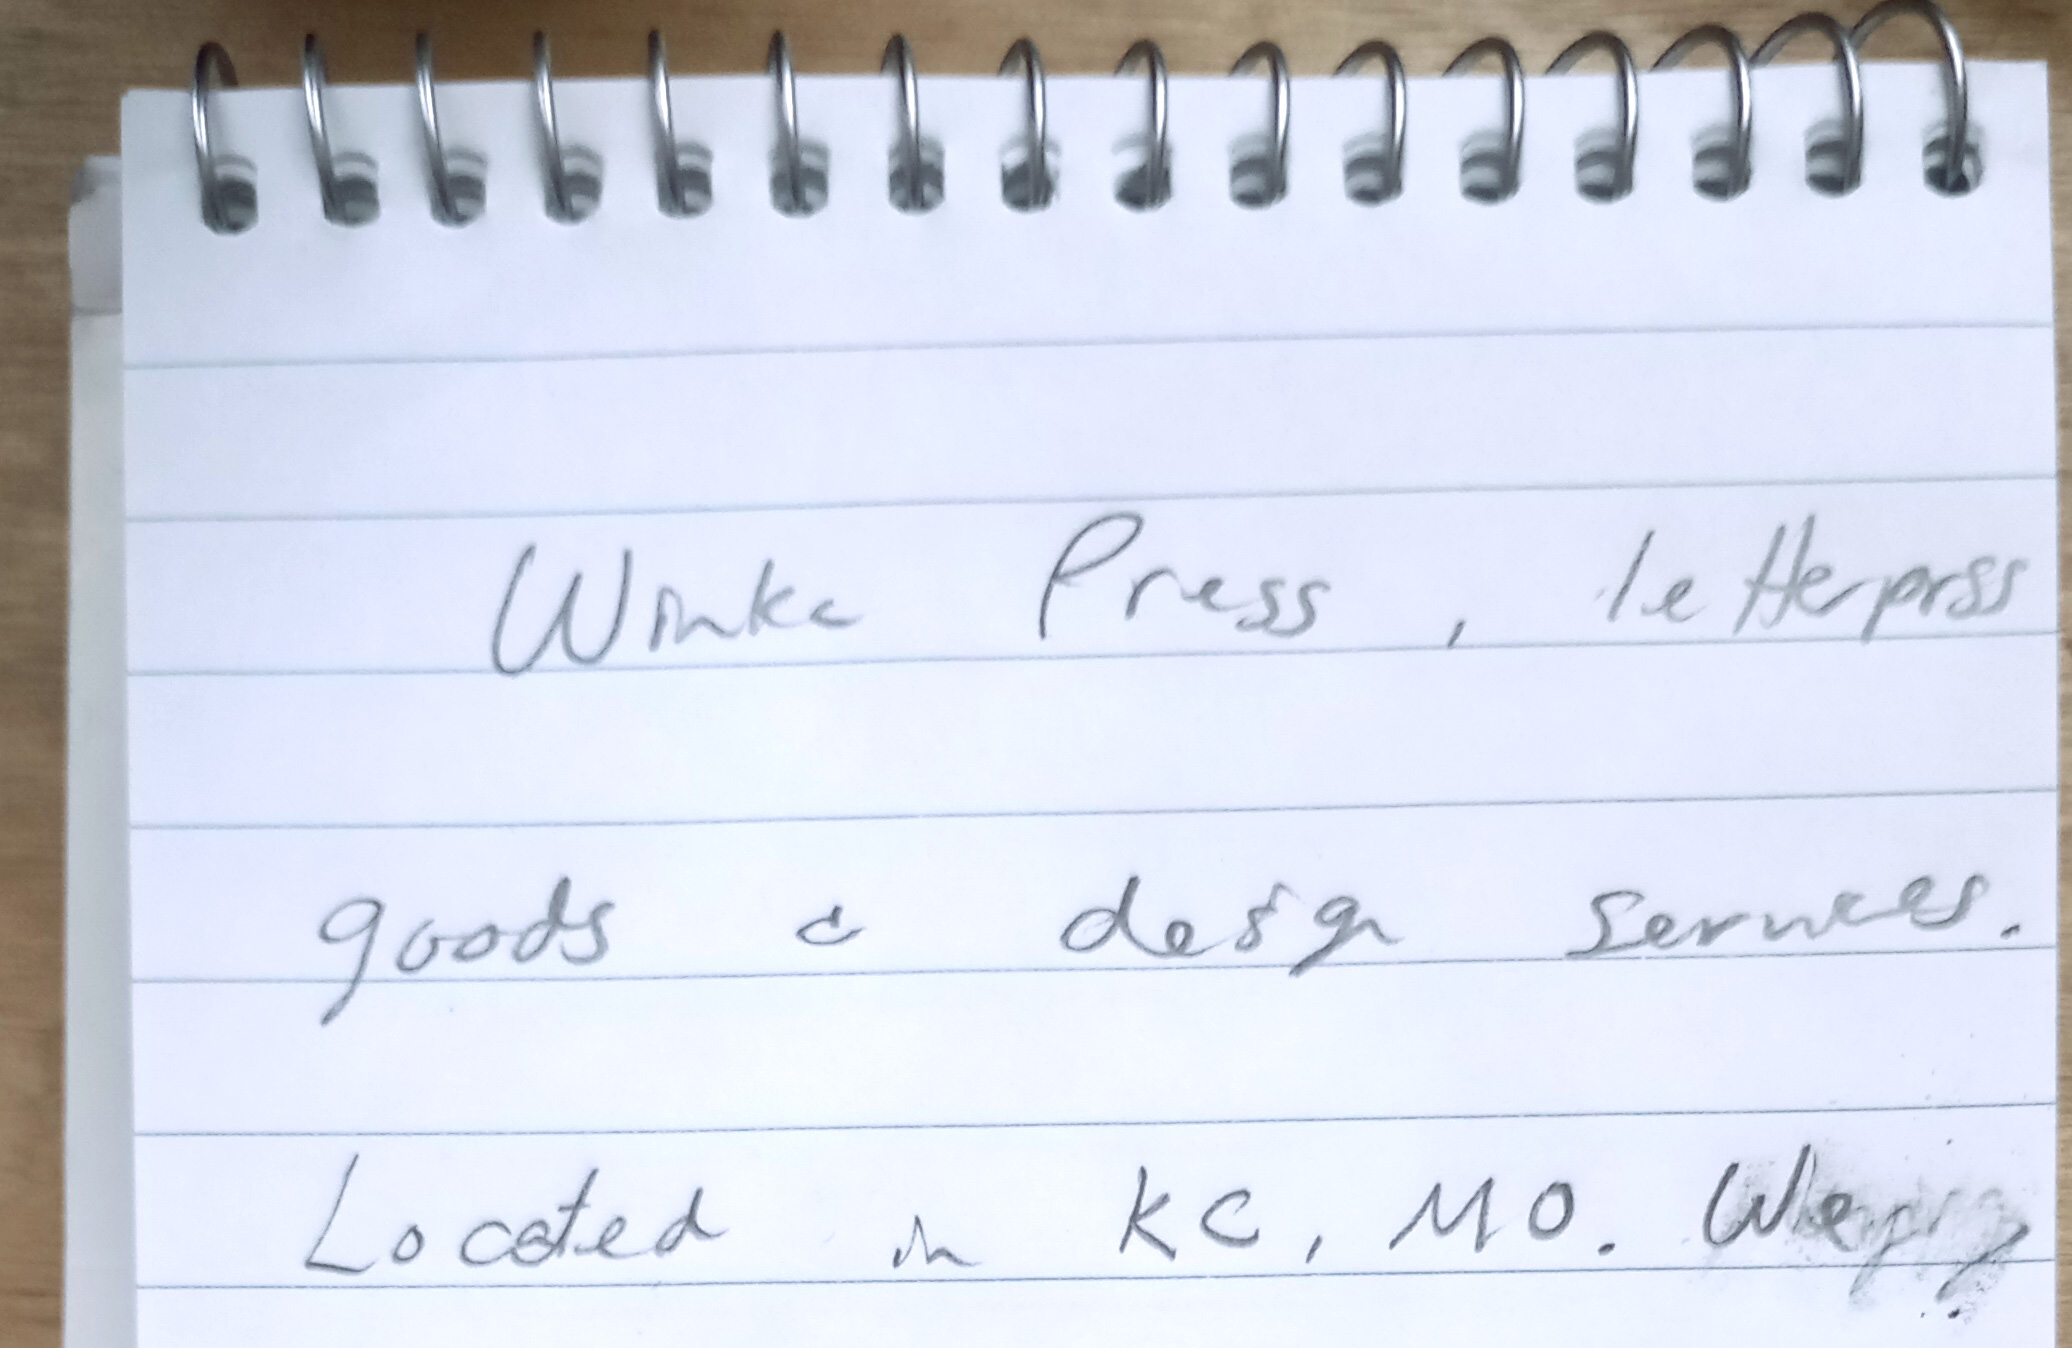 Winke Press, letterprss
goods & design services.
Located in KC, MO. We